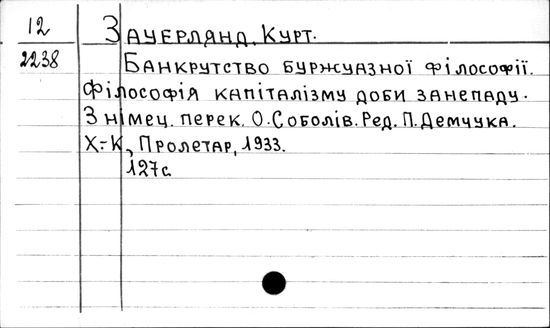 12
2238
Зауерлянд, Курт.
Банкрутство буржуазної філософії.
Філософія капіталізму доби занепаду.
З німец. перек. О. Соболів. Ред. П. Демчука.
Х.-К., Пролетар, 1933.
127с.